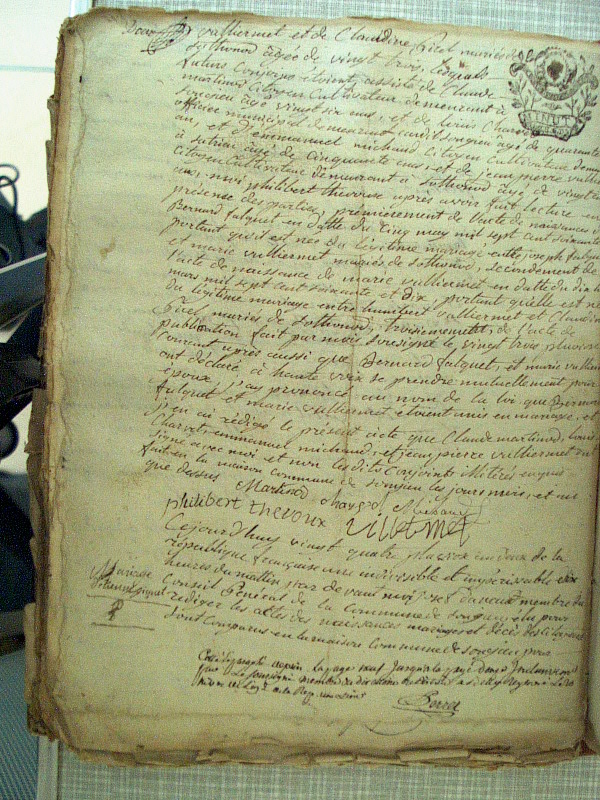 vulliermet et de Claudine Girel mariés de
Sothonod agée de vingt trois, lesquels
futurs Conjoints étoient assisté de Claude
martinod Citoyen Cultivateur demeurant à
songieu agé vingt six ans, et de louis Charvet
officier municipal demeurant audit songieu agé de quarante
an, et d'emmanuel michaud Citoyen Cultivateur demeu
à sutrieu agé de Cinquante ans, et de jean pierre vullier
Citoyen Cultivateur demeurant à Sothonod agé de vingt
ans, moi philibert thevoux après avoir fait lecture en
présence des parties, premièrement de l'acte de naissance de
Bernard fulquet en datte du Cinq may mil sept cent soixante
portant qu'il est né du légitime mariage entre joseph fulquet
et marie vulliermet mariés de sothonod, secondement de
l'acte de naissance de marie vulliermet en datte du dix
mars mil sept cent soixante et dix, portant qu'elle est née
du légitime mariage entre humbert vulliermet et Claudine
Girel mariés de sothonod, troisiemement, de l'acte de
publication fait par moi soussigné le vingt trois pluviose
courant après aussi que Bernard fulquet, et marie vullier
ont déclaré à haute voix se prendre mutuellement pour
epoux, j'ay prononcé au nom de la loi que Bernard
fulquet et marie vulliermet étoient unis en mariage, et
j'en ai rédigé le présent acte que Claude martinod, louis
Charvet, emmanuel michaud, et jean pierre vulliermet ont
signé avec moi et non les dits Conjoints illiterés enquis
fait en la maison commune de songieu les jours, mois, et an
que dessus
Martinod Charvet Michaud
philibert thevoux villermet
Cejourd'huy vingt quatre pluviose an deux de la
république française une indivisible et impérissable dix
heures du matin par devant moi joseph davenet membre du
Conseil Général de la Commune de songieu elu pour
rediger les actes des naissances mariages et décès des Citoyens
sont Comparus en la maison Commune de songieu pour
Mariage
Cotté et paraphé depuis la page
par Le soussigné membre du directoire du district
Perret